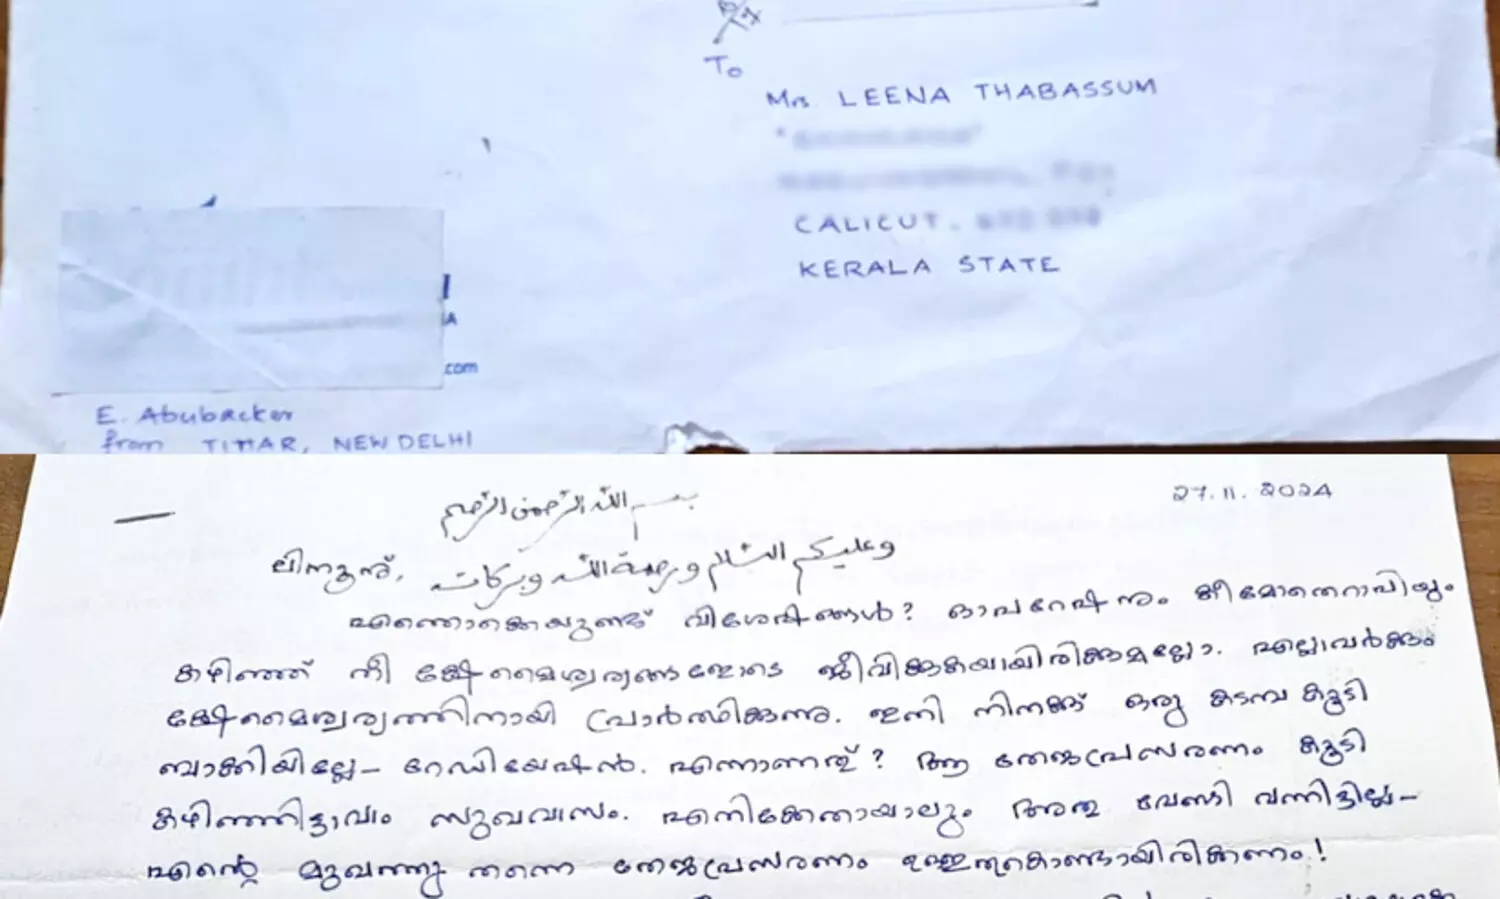 To
Mrs. LEENA THABASSUM
CALICUT.
KERALA STATE
.com
E. Abubacker
from TIHAR, NEW DELHI
27.11.2024
بسم الله الرحمن الرحيم
ലിനമോള്, وعليكم السلام ورحمة الله وبركاته
എന്തൊക്കെയുണ്ട് വിശേഷങ്ങൾ? ഓപറേഷനും കീമോതെറാപിയും
കഴിഞ്ഞ് നീ ക്ഷേമൈശ്വര്യങ്ങളോടെ ജീവിക്കുകയായിരിക്കുമല്ലോ. എല്ലാവർക്കും
ക്ഷേമൈശ്വര്യത്തിനായി പ്രാർത്ഥിക്കുന്നു. ഇനി നിനക്ക് ഒരു കടമ്പ കൂടി
ബാക്കിയില്ലേ- റേഡിയേഷൻ. എന്നാണത്? ആ തേജഃപ്രസരണം കൂടി
കഴിഞ്ഞിട്ടാവാം സുഖവാസം. എനിക്കേതായാലും അതു വേണ്ടി വന്നിട്ടില്ല-
എന്റെ മുഖത്തു തന്നെ തേജഃപ്രസരണം ഉള്ളതുകൊണ്ടായിരിക്കണം!